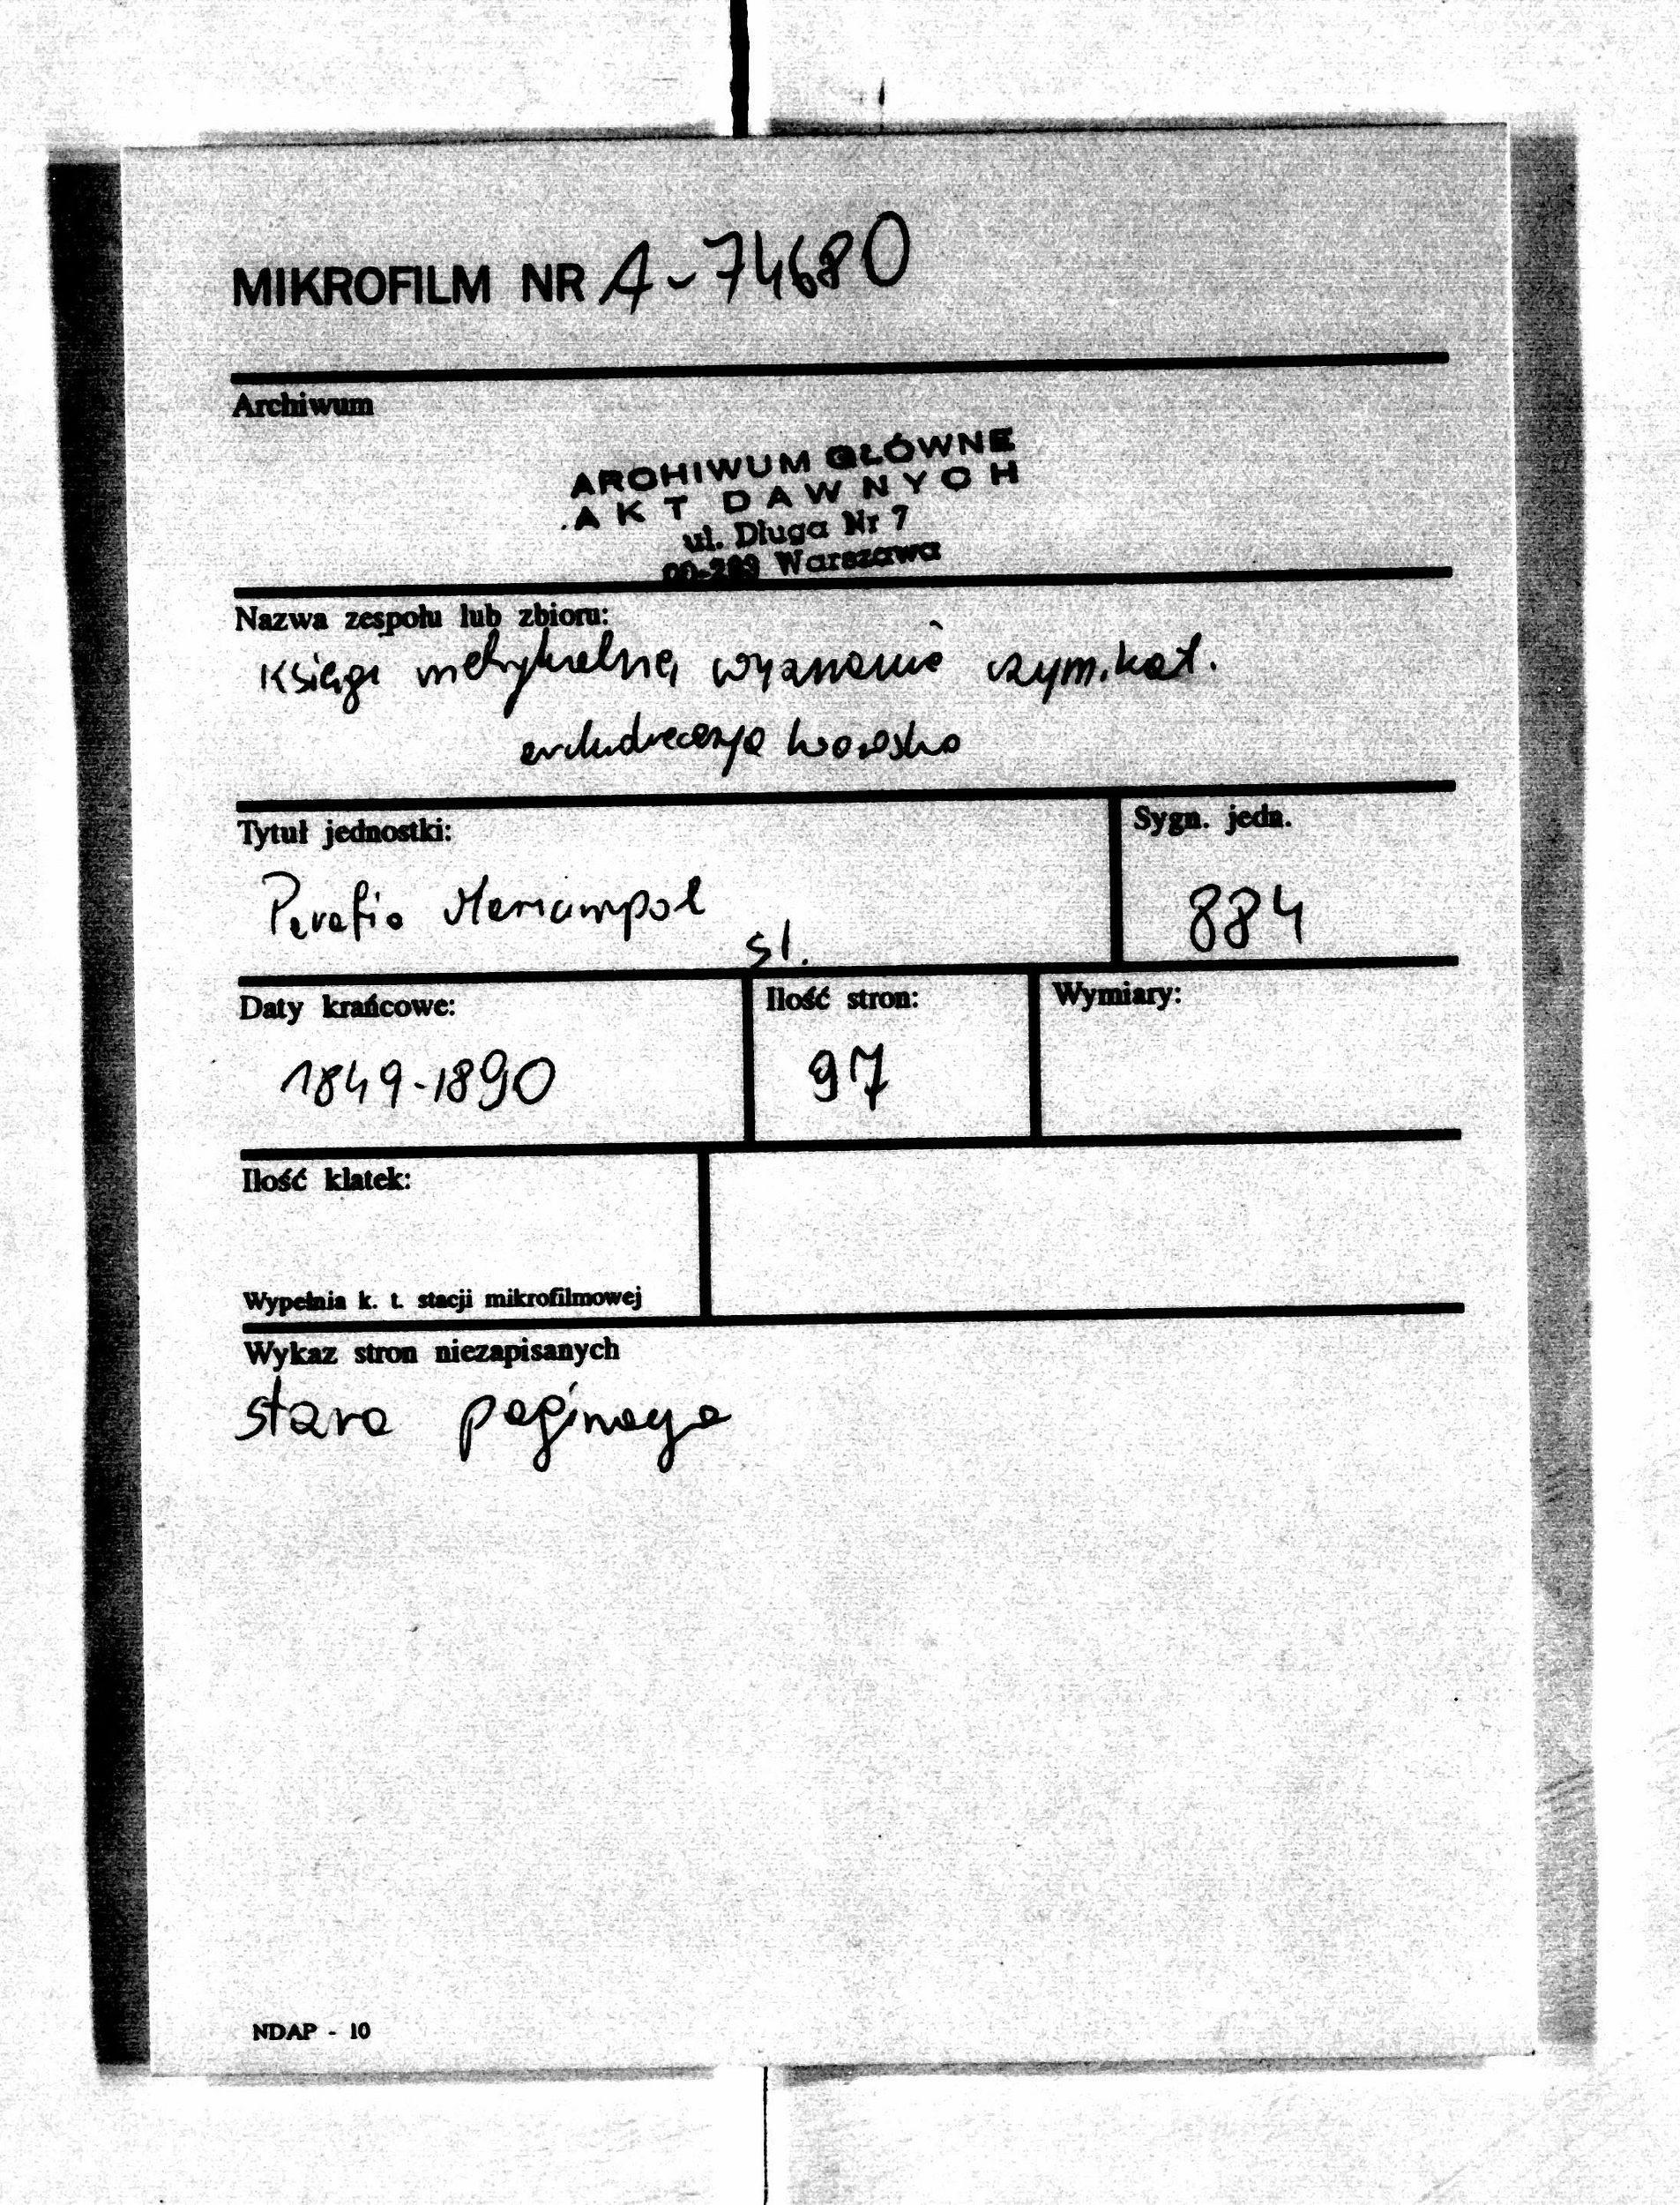 MIKROFILM NR A-74680
Archiwum
ARCHIWUM GŁÓWNE
AKT DAWNYCH
ul. Długa Nr 7
00-263 Warszawa
Nazwa zespołu lub zbioru:
Księgi metrykalne wyznania rzym.kat.
archidiecezja lwowska
Tytuł jednostki:
Sygn. jedn.
Parafia Mariampol
884
sł.
Daty krańcowe:
Ilość stron:
Wymiary:
1849-1890
97
Ilość klatek:
Wypełnia k. t. stacji mikrofilmowej
Wykaz stron niezapisanych
stara paginacja
NDAP - 10